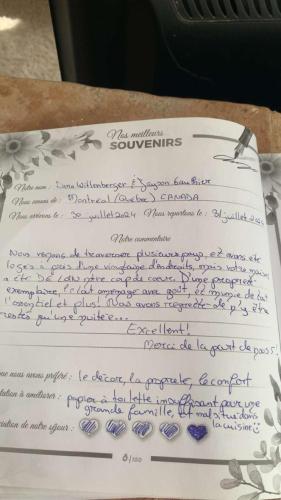 Nos meilleurs
SOUVENIRS
Notre nom : Dana Wittenberger & Jayson Gauthier
Nous venons de : Montréal (Québec) CANADA
Nous arrivons le : 30 juillet 2024 Nous repartons le : 31 juillet 2024
Notre commentaire
Nous venons de traverser plusieurs pays, et avons été
logés à près d'une vingtaine d'endroits, mais votre maison
a été de loin notre coup de cœur. D'une propreté
exemplaire, le tout aménagé avec goût, et munie de tout
l'essentiel et plus! Nous avons regretté de n'y être
restés qu'une nuitée...
Excellent!
Merci de la part de nous 5!
que nous avons préféré : le décor, la propreté, le confort
à améliorer : papier à toilette insuffisant pour une
grande famille, et mal situé dans
la cuisine
de notre séjour :
6/100